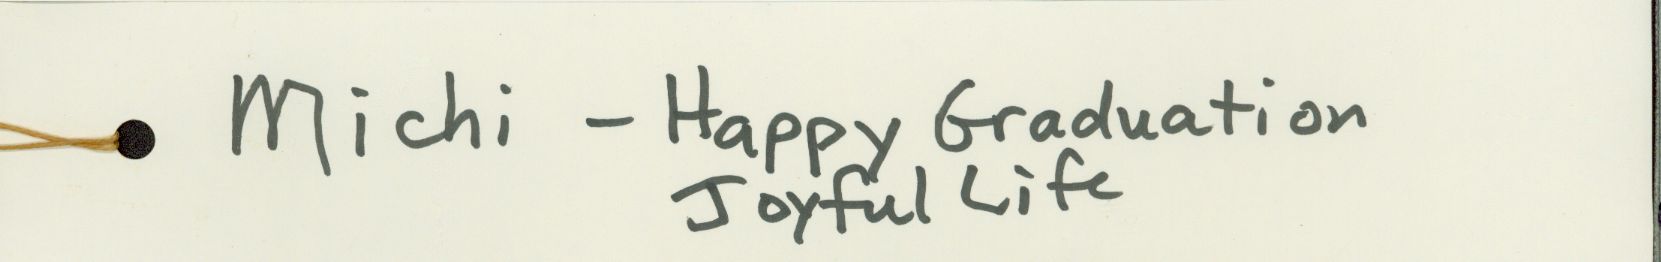 Michi - Happy Graduation
Joyful Life